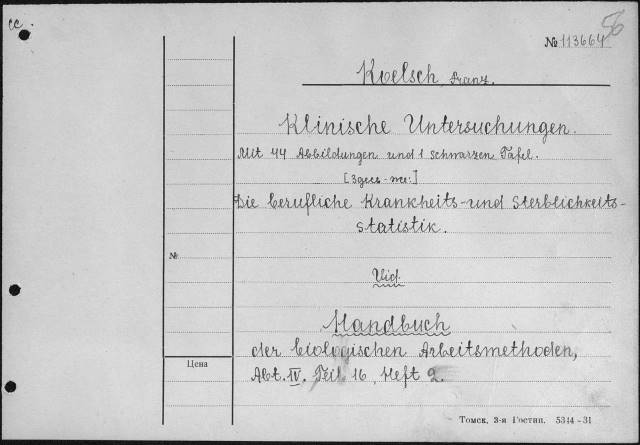 cc.
№ 113664
Koelsch, Franz.
Klinische Untersuchungen.
Mit 44 Abbildungen und 1 schwarzen Tafel.
[Здесь-же:]
Die berufliche Krankheits- und Sterblichkeits-
statistik.
№
Vid.
Handbuch
der biologischen Arbeitsmethoden,
Abt. IV. Teil 16, Heft 2.
Цена
Томск, 3-я Гостип. 5344-31